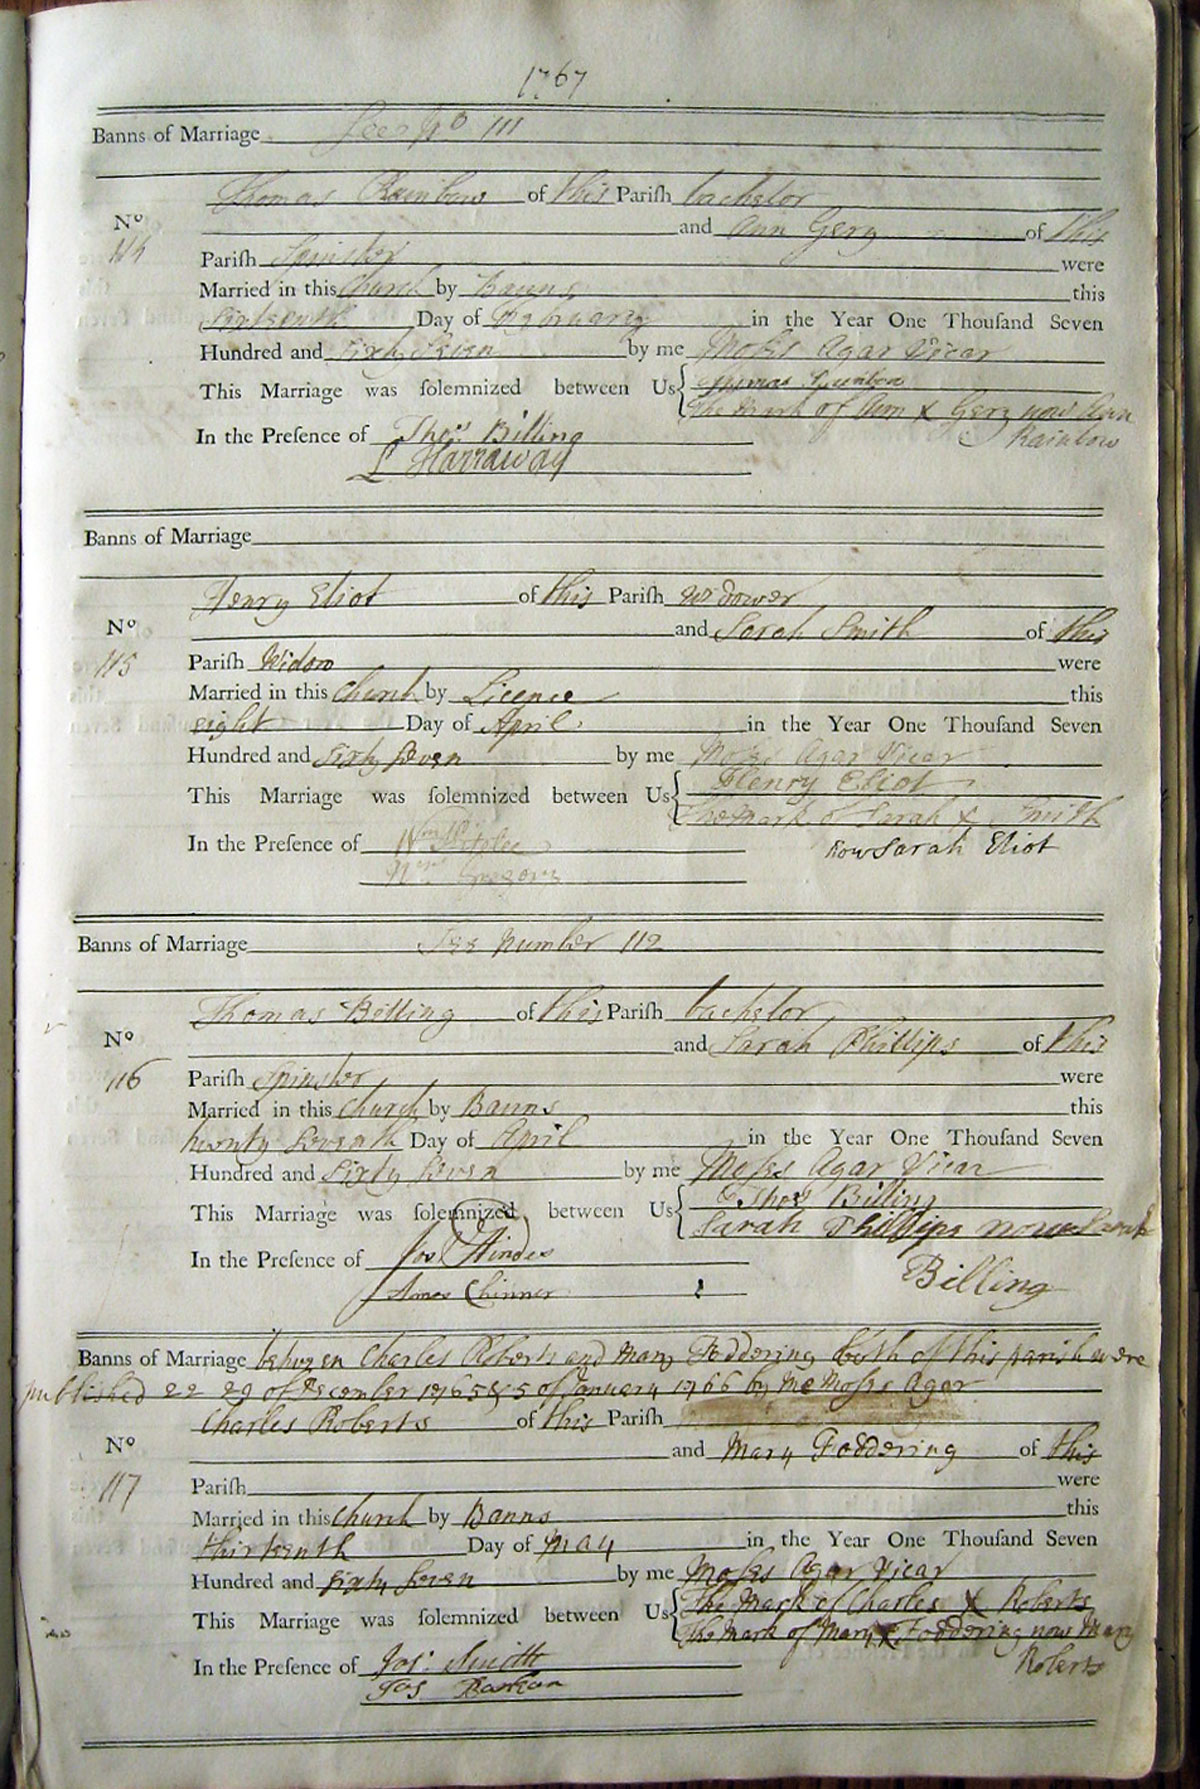 1767
Banns of Marriage See No 111
Thomas Rainbow of this Pariſh bachelor
No and Ann Gery of this
114 Pariſh Spinster were
Married in this Church by Banns this
Day of February in the Year One Thouſand Seven
Hundred and Sixty Seven by me Moses Agar Vicar
This Marriage was ſolemnized between Us Thomas
The Mark of Ann X Gery now Ann
Rainbow
In the Preſence of Thos Billing
L Harraway
Banns of Marriage
Henry Eliot of this Pariſh Widower
No and Sarah Smith of this
115 Pariſh Widow were
Married in this Church by Licence this
eight Day of April in the Year One Thouſand Seven
Hundred and Sixty Seven by me Moses Agar Vicar
This Marriage was ſolemnized between Us Henry Eliot
The Mark of Sarah X Smith
now Sarah Eliot
In the Preſence of Wm
Wm Gregory
Banns of Marriage See Number 112
Thomas Billing of this Pariſh bachelor
No and Sarah Phillips of this
116 Pariſh Spinster were
Married in this Church by Banns this
twenty Seventh Day of April in the Year One Thouſand Seven
Hundred and Sixty Seven by me Moſes Agar Vicar
This Marriage was ſolemnized between Us Thos Billing
Sarah Phillips now Sarah
Billing
In the Preſence of Jos Hindes
Amos Chinner
Banns of Marriage between Charles Roberts and Mary Foddering both of this parish were
published 22 29 of December 1765 & 5 of January 1766 by me Moſes Agar
Charles Roberts of this Pariſh
No and Mary Foddering of this
117 Pariſh were
Married in this Church by Banns this
thirteenth Day of May in the Year One Thouſand Seven
Hundred and Sixty Seven by me Moſes Agar Vicar
This Marriage was ſolemnized between Us The Mark of Charles X Roberts
The Mark of Mary X Foddering now Mary
Roberts
In the Preſence of Jos. Smith
Jos